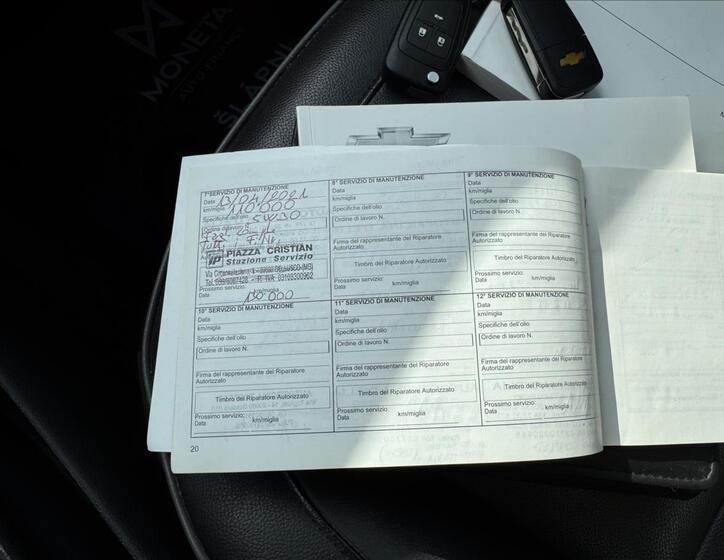 MONETA
AUTO FINANCE
7° SERVIZIO DI MANUTENZIONE
Data 13/04/2021
km/miglia 110'000
Specifiche dell'olio 5W30
Ordine di lavoro N.
PIAZZA CRISTIAN
Stazione Servizio
Prossimo servizio: km/miglia
Data 130'000
8° SERVIZIO DI MANUTENZIONE
Data
km/miglia
Specifiche dell'olio
Ordine di lavoro N.
Firma del rappresentante del Riparatore
Autorizzato
Timbro del Riparatore Autorizzato
Prossimo servizio: km/miglia
Data
9° SERVIZIO DI MANUTENZIONE
Data
km/miglia
Specifiche dell'olio
Ordine di lavoro N.
Firma del rappresentante del Riparatore
Autorizzato
Timbro del Riparatore Autorizzato
Prossimo servizio: km/miglia
Data
10° SERVIZIO DI MANUTENZIONE
Data
km/miglia
Specifiche dell'olio
Ordine di lavoro N.
Firma del rappresentante del Riparatore
Autorizzato
Timbro del Riparatore Autorizzato
Prossimo servizio: km/miglia
Data
11° SERVIZIO DI MANUTENZIONE
Data
km/miglia
Specifiche dell'olio
Ordine di lavoro N.
Firma del rappresentante del Riparatore
Autorizzato
Timbro del Riparatore Autorizzato
Prossimo servizio: km/miglia
Data
12° SERVIZIO DI MANUTENZIONE
Data
km/miglia
Specifiche dell'olio
Ordine di lavoro N.
Firma del rappresentante del Riparatore
Autorizzato
Timbro del Riparatore Autorizzato
Prossimo servizio: km/miglia
Data
20